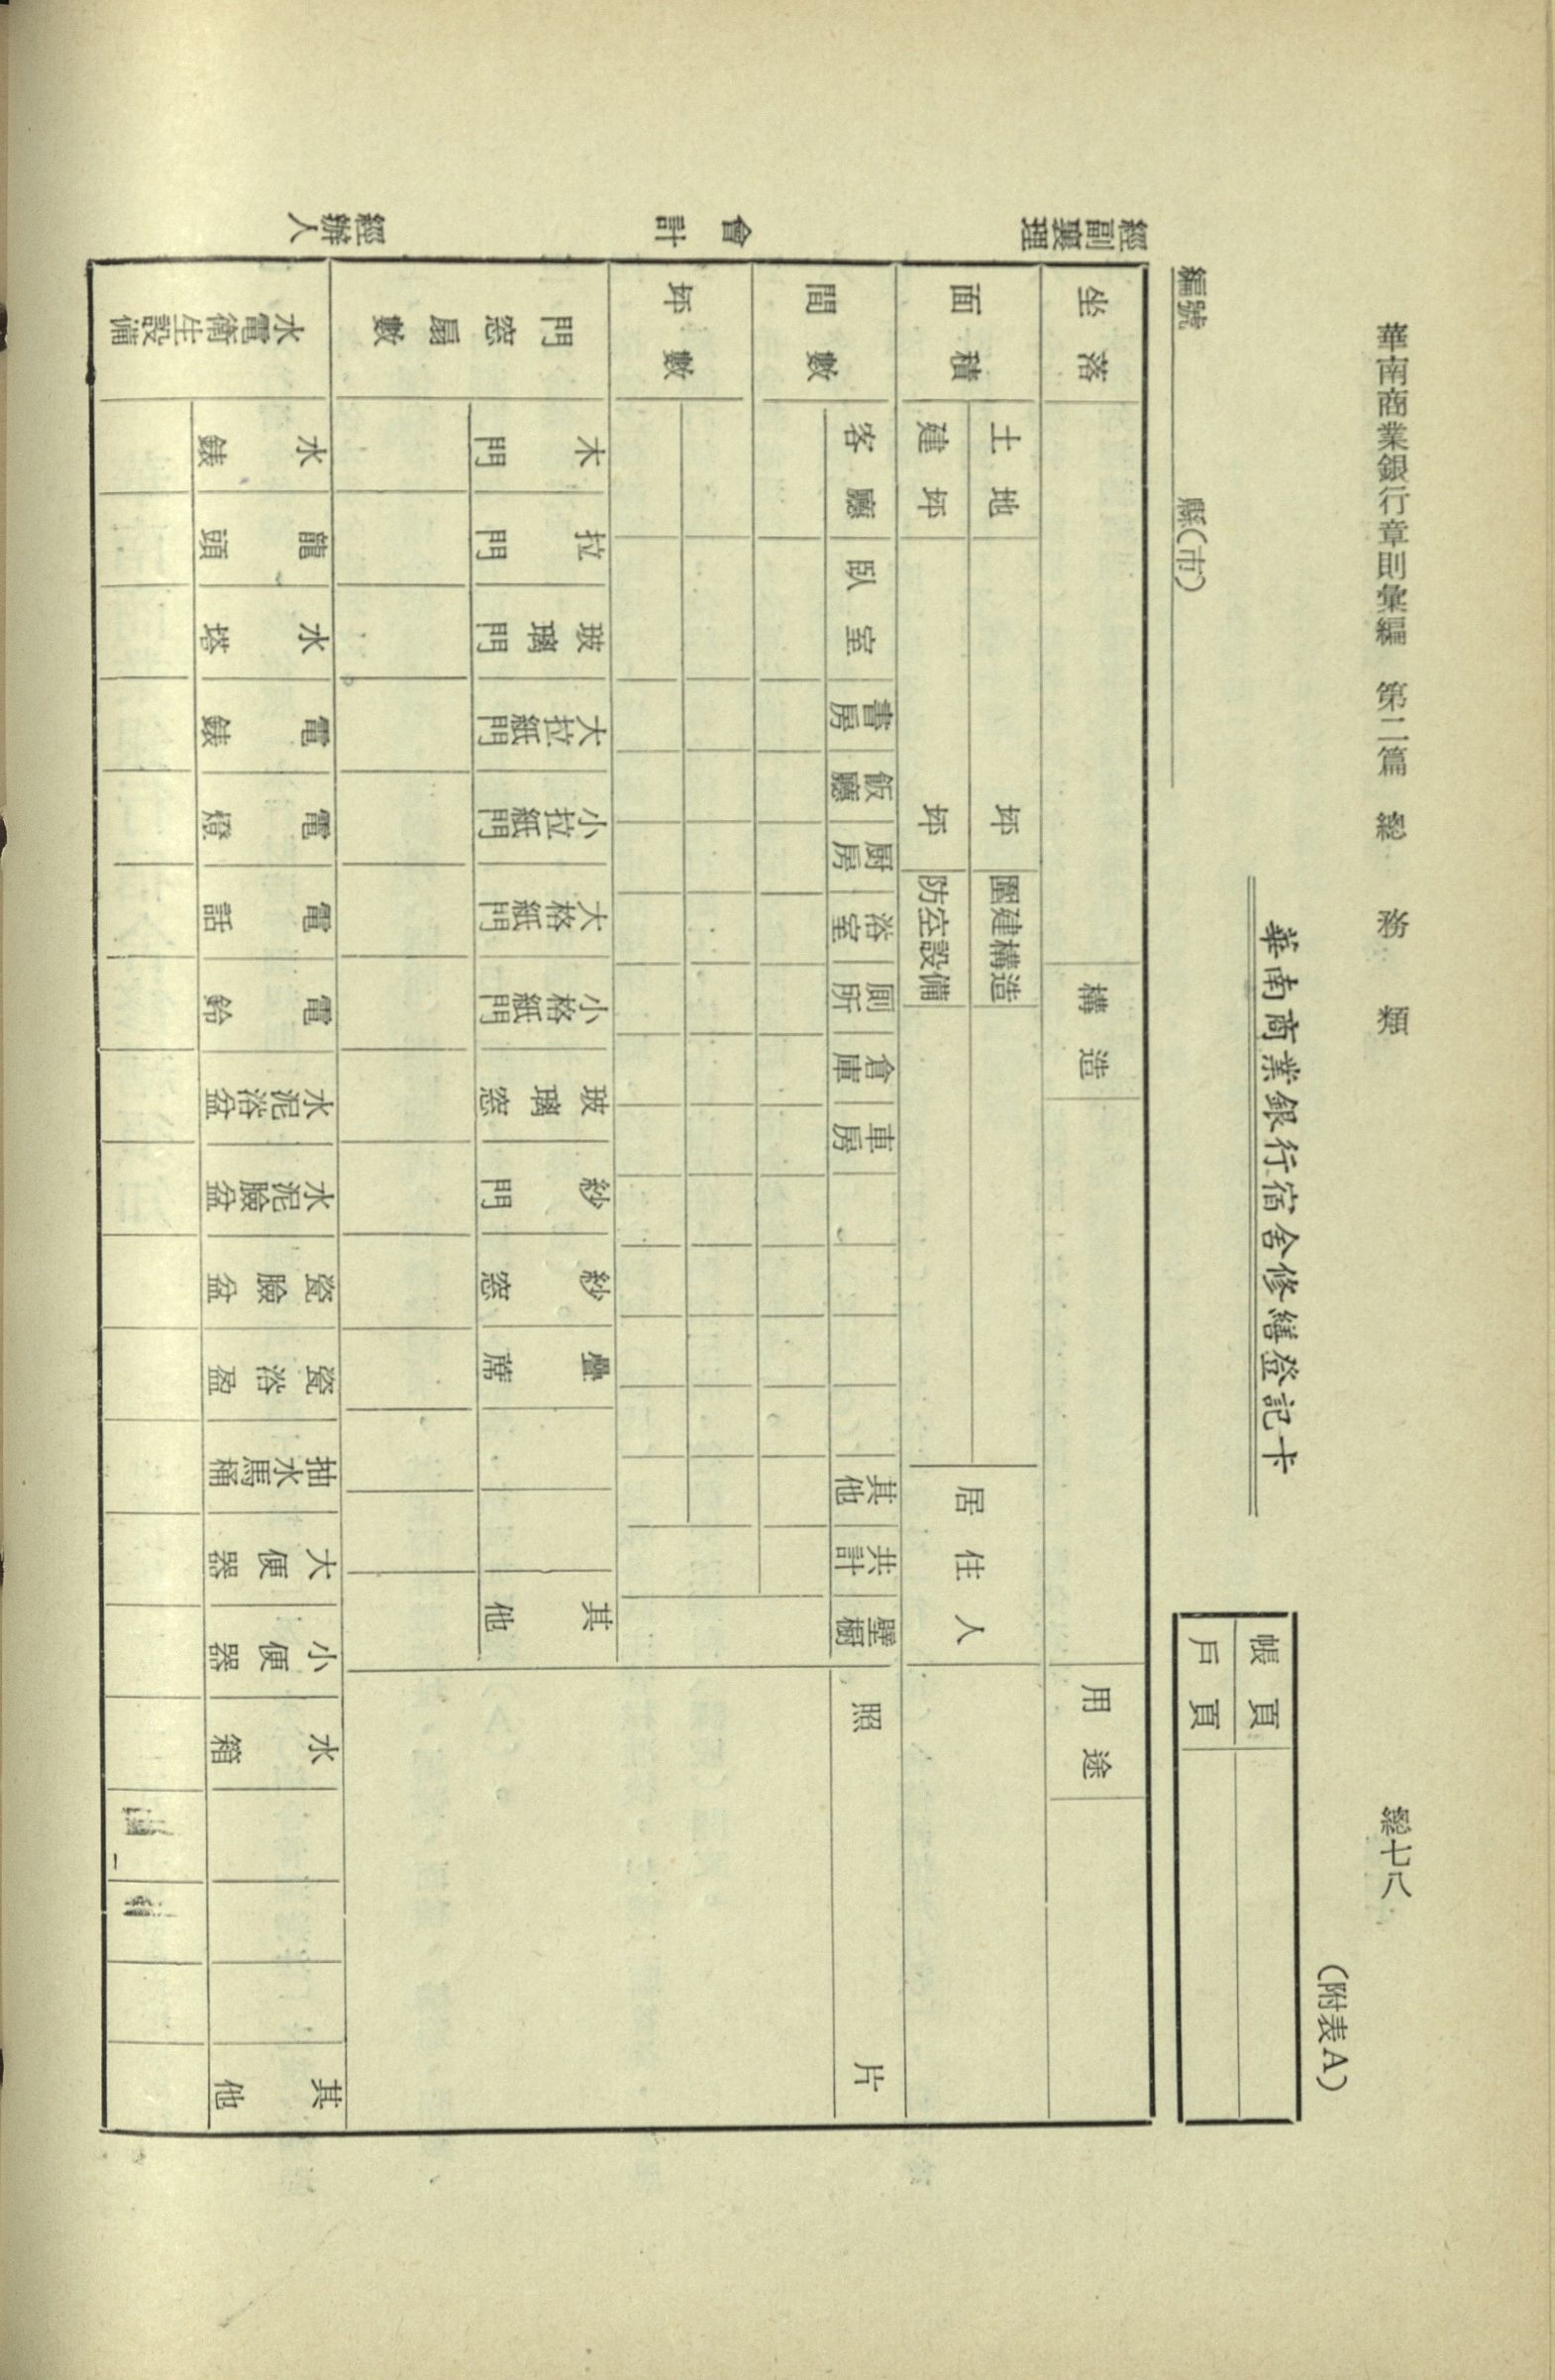 華南商業銀行章則彙編　第二篇　總務類
總七八
(附表A)
華南商業銀行宿舍修繕登記卡
帳頁
戶頁
編號
縣(市)
坐落
構造
用途
面積
土地
坪
圍建構造
居住人
建坪
坪
防空設備
間數
客廳
臥室
書房
飯廳
厨房
浴室
厠所
倉庫
車房
其他
共計
壁櫥
照片
坪數
門窓扇數
木門
拉門
玻璃門
大拉紙門
小拉紙門
大格紙門
小格紙門
玻璃窓
紗門
紗窓
疊蓆
其他
水電衛生設備
水錶
龍頭
水塔
電錶
電燈
電話
電鈴
水泥浴盆
水泥臉盆
瓷臉盆
瓷浴盈
抽水馬桶
大便器
小便器
水箱
其他
經副襄理
會計
經辦人